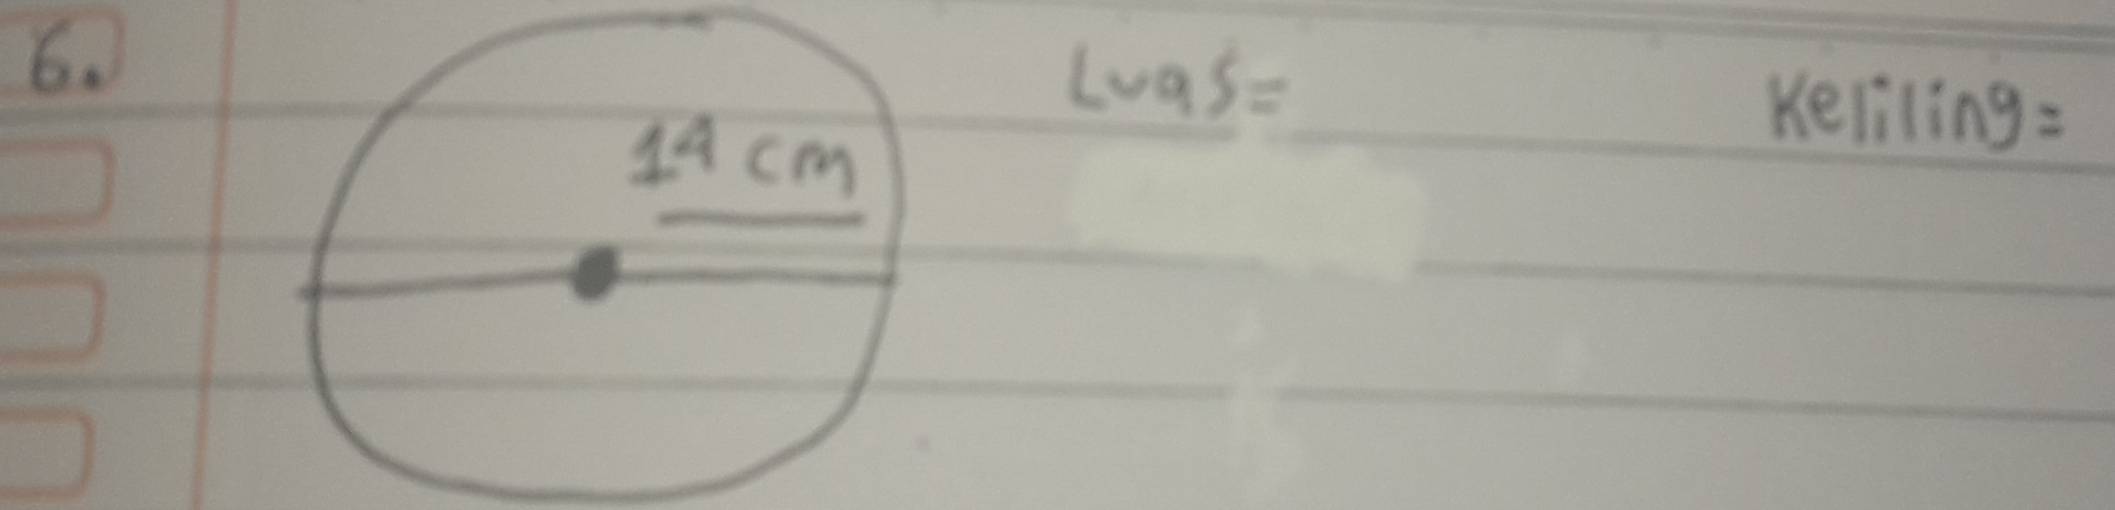 6.
Luas=
Keliling=
14 cm